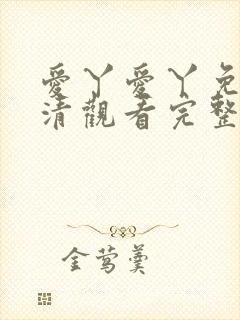 愛丫愛丫免
清觀看完整
金莺羹